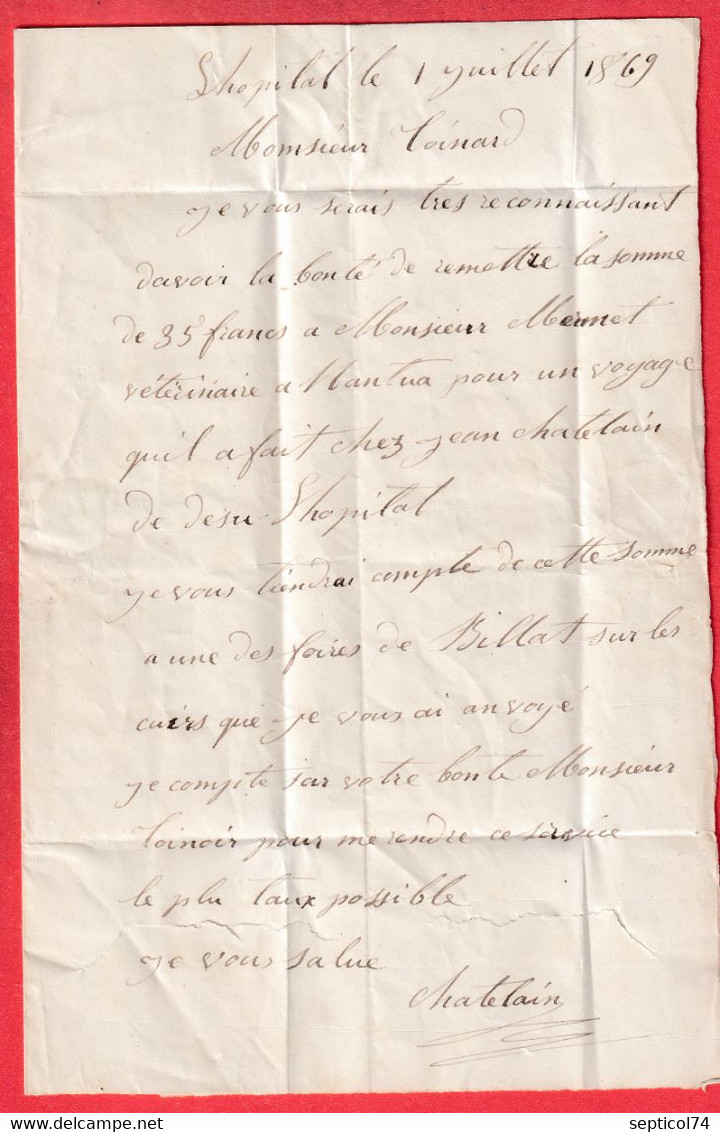 Lhopital le 1 juillet 1869
Momsieur Toinard
je vous serais tres reconnaissant
davoir la bonté de remettre la somme
de 35 francs a Monsieur Mermet
vétérinaire a Nantua pour un voyage
quil a fait chez jean chatelain
de desu Lhopital
je vous tiendrai compte de cette somme
a une des foires de Billat sur les
cuirs que je vous ai anvoyé
je compte sur votre bonte Monsieur
Toinair pour me rendre ce service
le plu taux possible
je vous salue
chatelain
septicol74